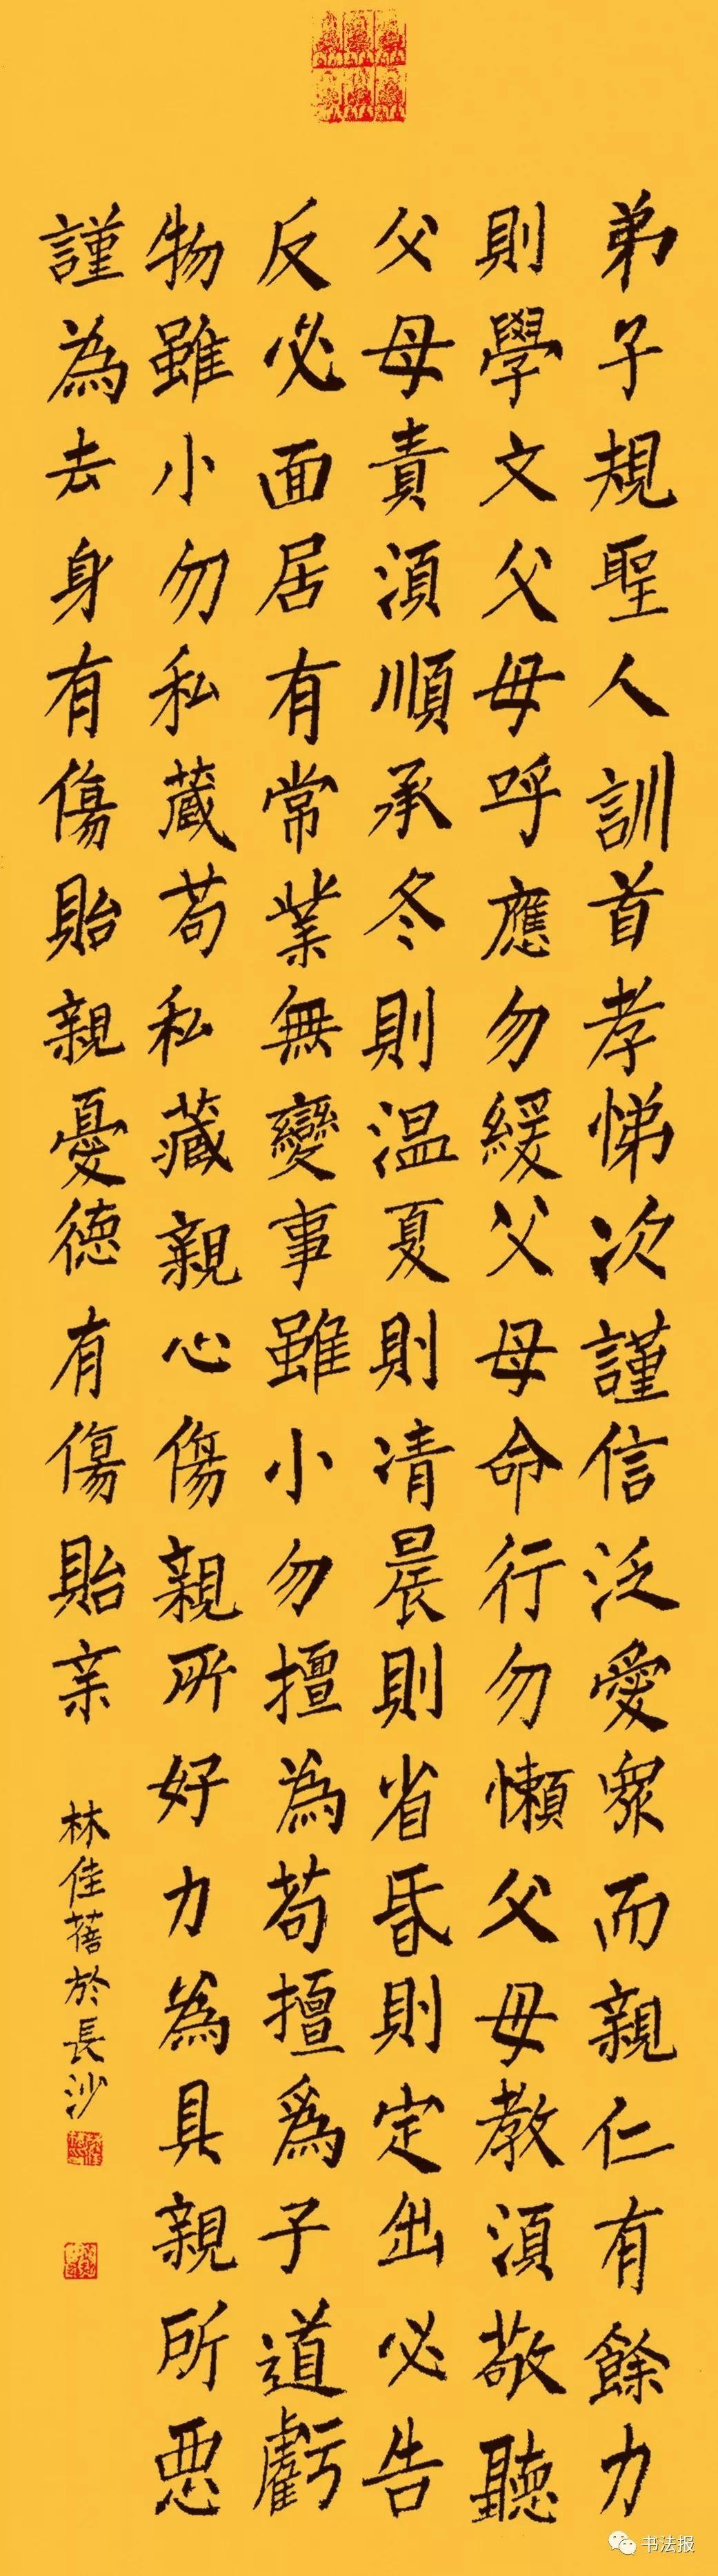 弟子規聖人訓首孝悌次謹信泛愛眾而親仁有餘力
則學文父母呼應勿緩父母命行勿懶父母教須敬聽
父母責須順承冬則温夏則凊晨則省昏則定出必告
反必面居有常業無變事雖小勿擅為苟擅爲子道虧
物雖小勿私蔵苟私藏親心傷親所好力為具親所惡
謹為去身有傷貽親憂德有傷貽亲
林佳蓓於長沙
书法报